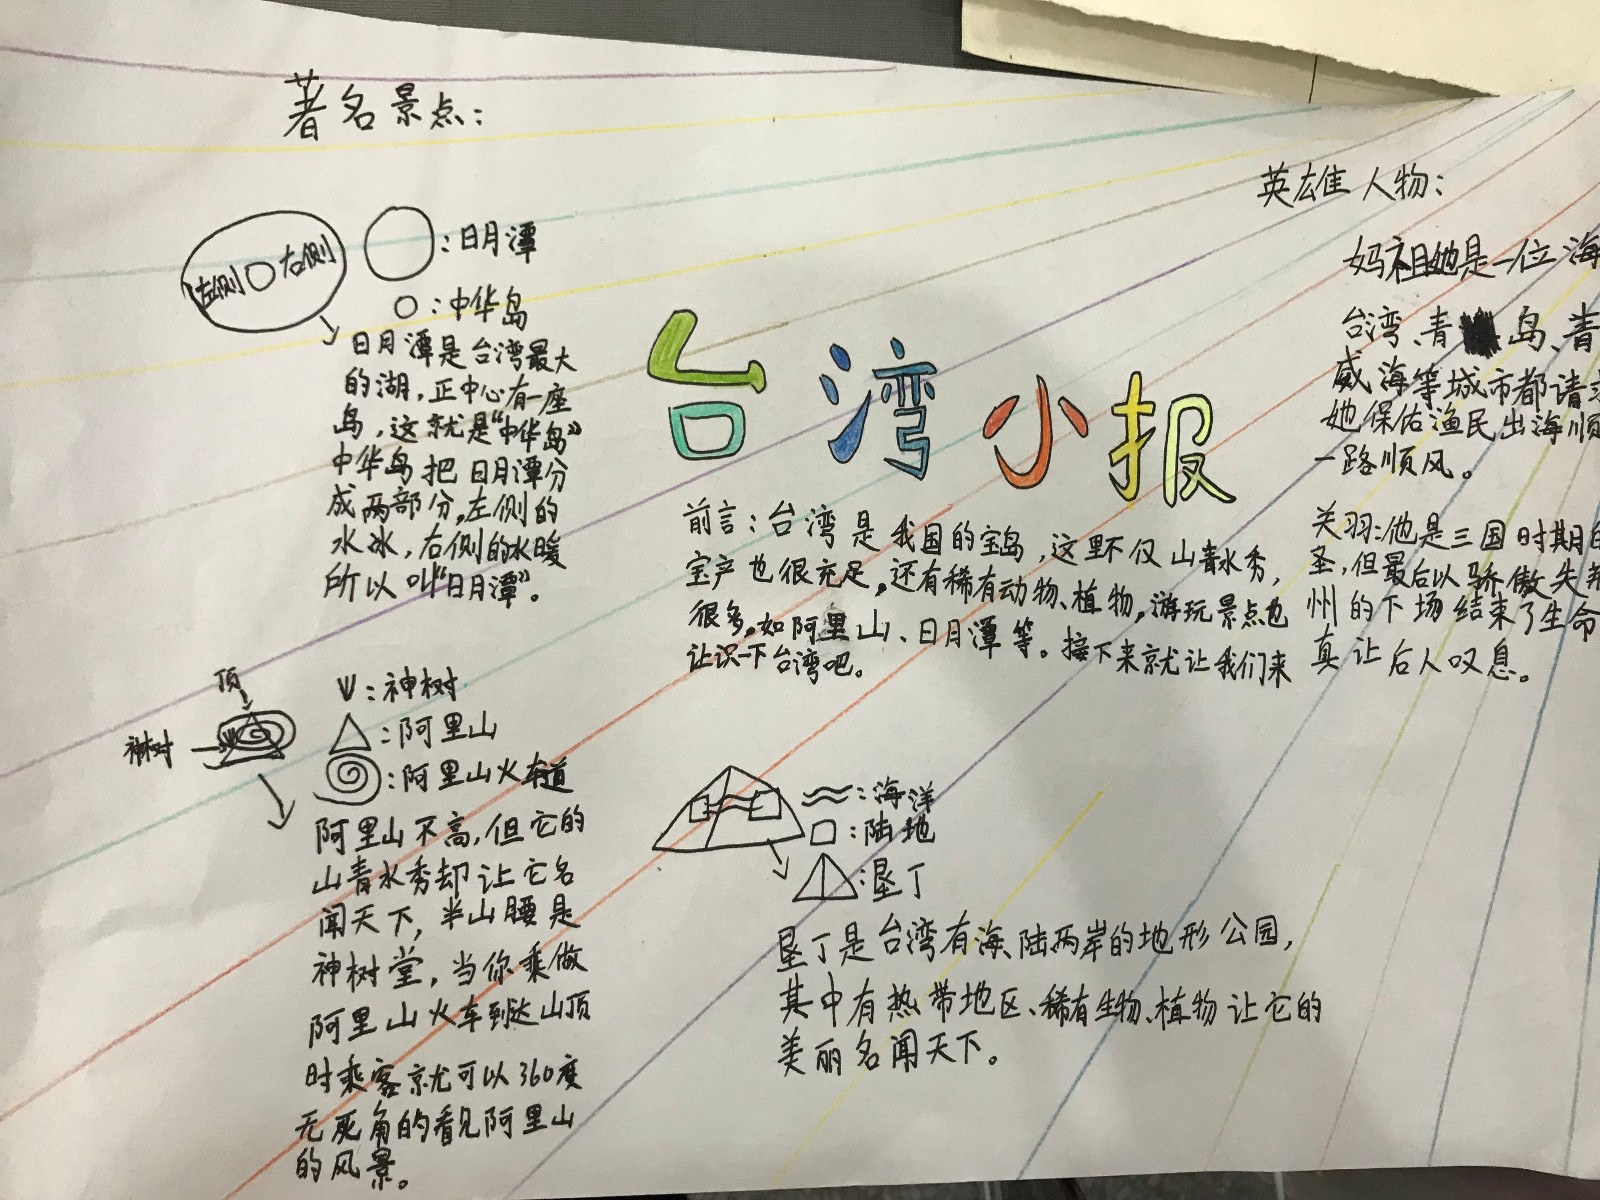 著名景点：
左侧 右侧
：日月潭
：中华岛
日月潭是台湾最大
的湖，正中心有一座
岛，这就是“中华岛”
中华岛把日月潭分
成两部分，左侧的
水冰，右侧的水暖
所以叫“日月潭”。
顶
神树
：神树
：阿里山
：阿里山火车道
阿里山不高，但它的
山青水秀却让它名
闻天下，半山腰是
神树堂，当你乘做
阿里山火车到达山顶
时乘客就可以360度
无死角的看见阿里山
的风景。
台湾小报
前言：台湾是我国的宝岛，这里不仅山青水秀，
宝产也很充足，还有稀有动物、植物，游玩景点也
很多，如阿里山、日月潭等。接下来就让我们来
让识一下台湾吧。
：海洋
：陆地
：垦丁
垦丁是台湾有海、陆两岸的地形公园，
其中有热带地区、稀有生物、植物让它的
美丽名闻天下。
英雄人物：
妈祖她是一位海
台湾、青岛、青
威海等城市都请求
她保佑渔民出海顺
一路顺风。
关羽：他是三国时期的
圣，但最后以骄傲失荆
州的下场结束了生命
真让后人叹息。